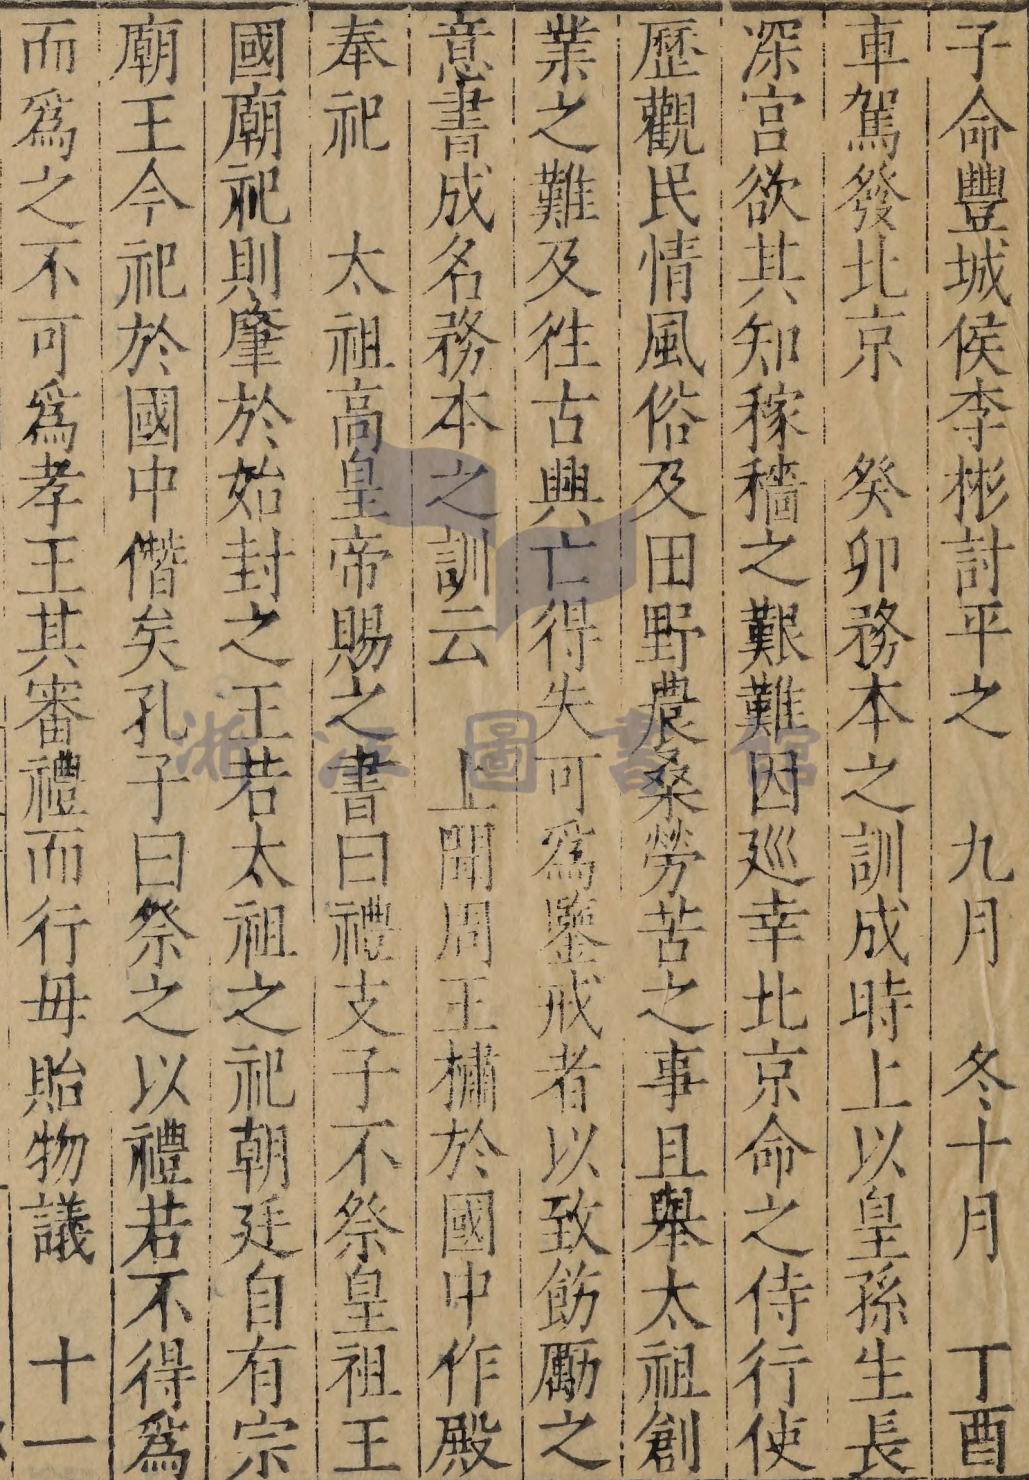 子命豐城侯李彬討平之　九月　冬十月　丁酉
車駕發北京　癸卯務本之訓成時上以皇孫生長
深宮欲其知稼穡之艱難因廵幸北京命之侍行使
歷觀民情風俗及田野農桑勞苦之事且舉太祖創
業之難及徃古興亡得失可爲鑒戒者以致飭勵之
意書成名務本之訓云　上聞周王橚於國中作殿
奉祀　太祖高皇帝賜之書曰禮支子不祭皇祖王
國廟祀則肇於始封之王若太祖之祀朝廷自有宗
廟王今祀於國中僭矣孔子曰祭之以禮若不得爲
而爲之不可爲孝王其審禮而行毋貽物議　十一
浙江圖書館